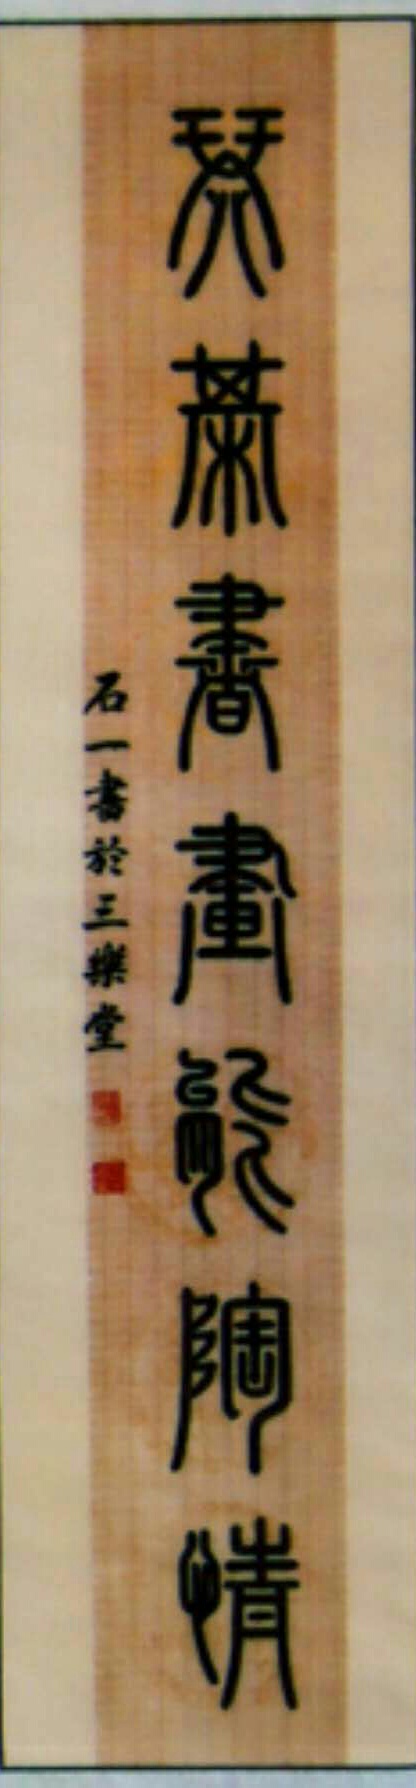 琴棊書畫能陶情
石一書於三樂堂